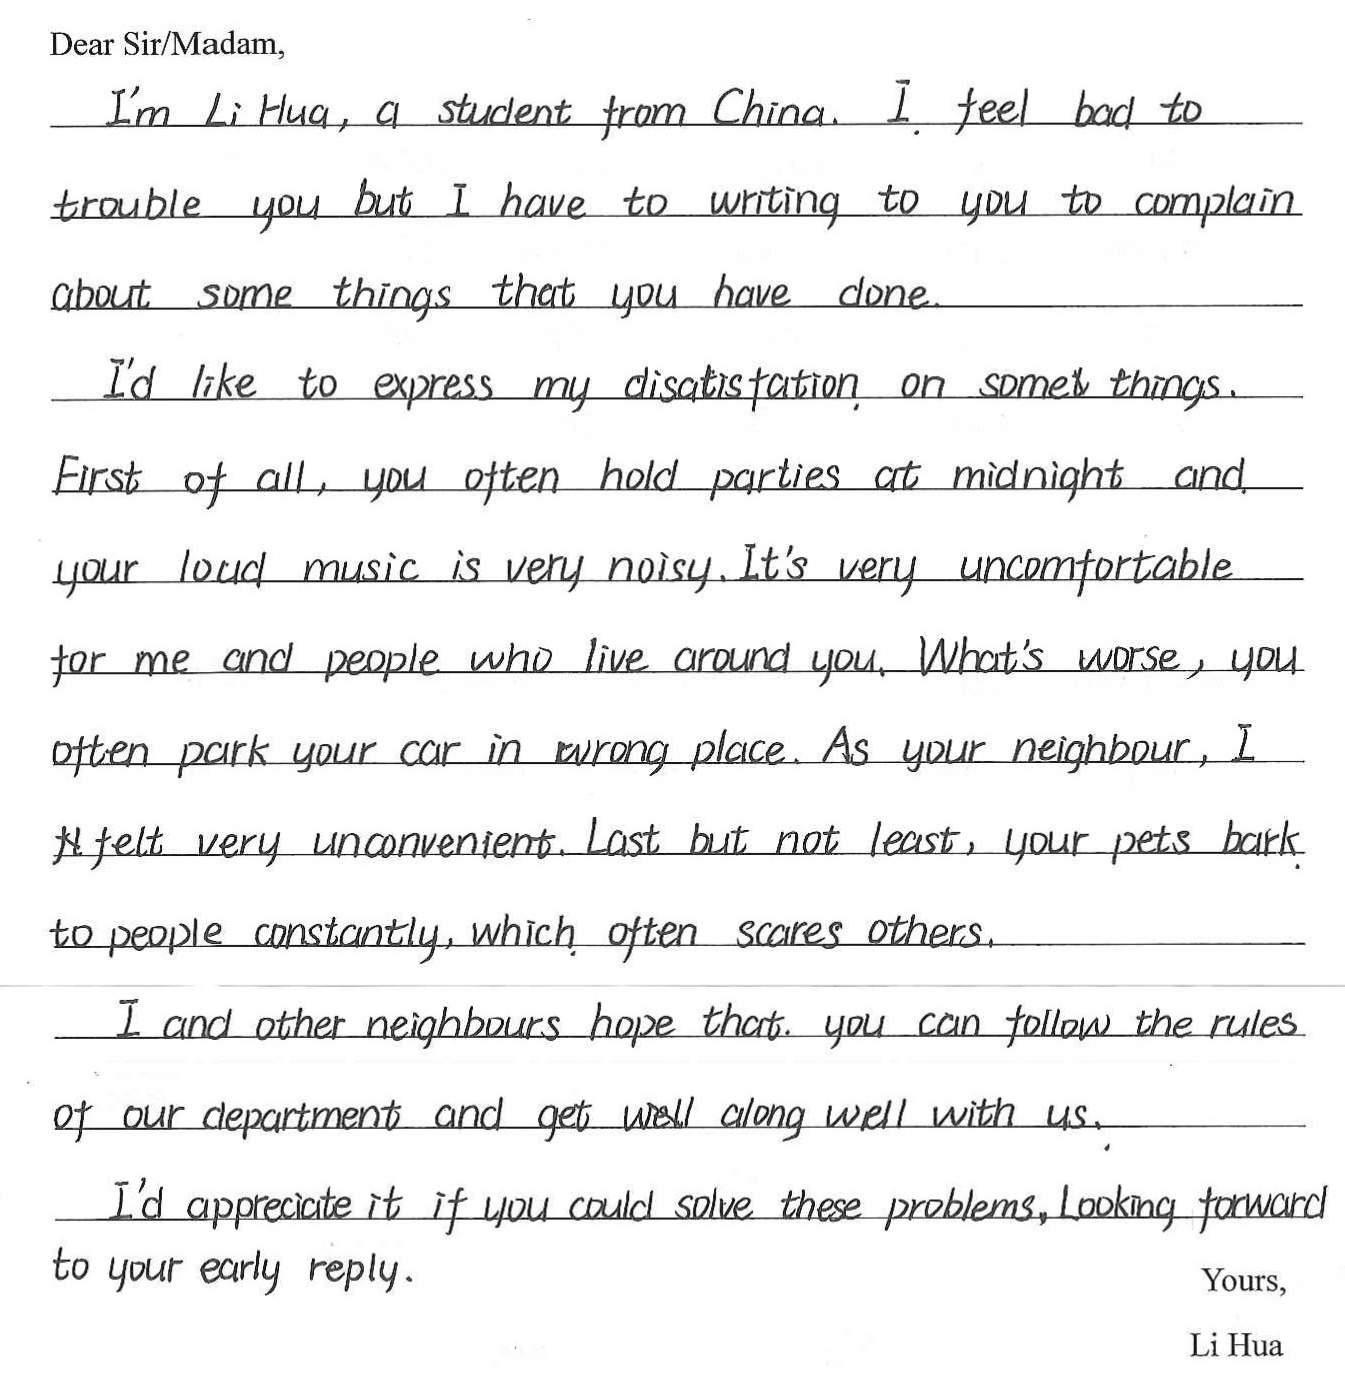 Dear Sir/Madam,
I'm Li Hua, a student from China. I feel bad to
trouble you but I have to writing to you to complain
about some things that you have done.
I'd like to express my disatisfation on some things.
First of all, you often hold parties at midnight and
your loud music is very noisy. It's very uncomfortable
for me and people who live around you. What's worse, you
often park your car in wrong place. As your neighbour, I
felt very unconvenient. Last but not least, your pets bark
to people constantly, which often scares others.
I and other neighbours hope that you can follow the rules
of our department and get well along well with us.
I'd appreciate it if you could solve these problems. Looking forward
to your early reply.
Yours,
Li Hua